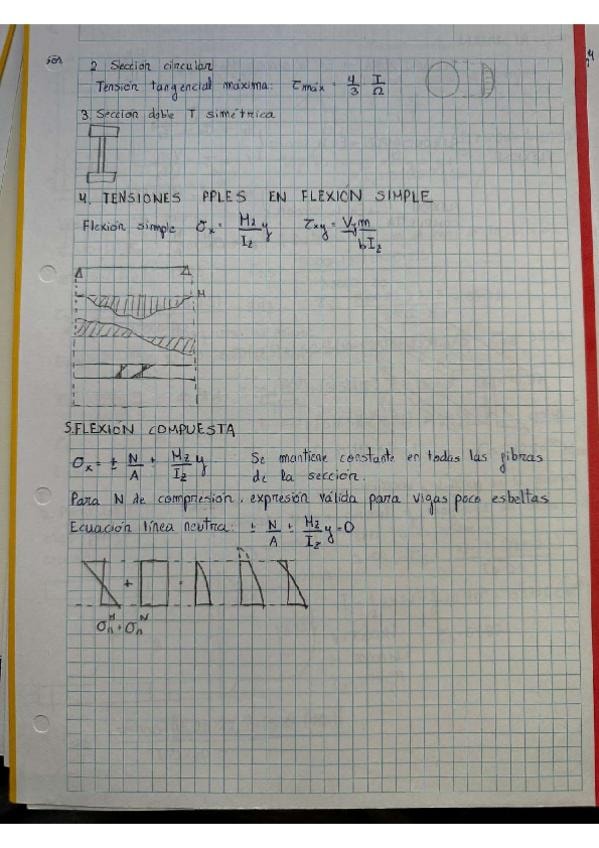 2. Sección circular
Tensión tangencial máxima: τmáx = 4/3 T/Ω
3. Sección doble T simétrica
4. TENSIONES PPLES EN FLEXIÓN SIMPLE
Flexión simple σx = Mz/Iz y τxy = Vy m/bIz
M
5. FLEXIÓN COMPUESTA
σx = ± N/A ± Mz/Iz y Se mantiene constante en todas las fibras
de la sección.
Para N de compresión, expresión válida para vigas poco esbeltas
Ecuación línea neutra: ± N/A ± Mz/Iz y = 0
+ =
σn^M + σn^N